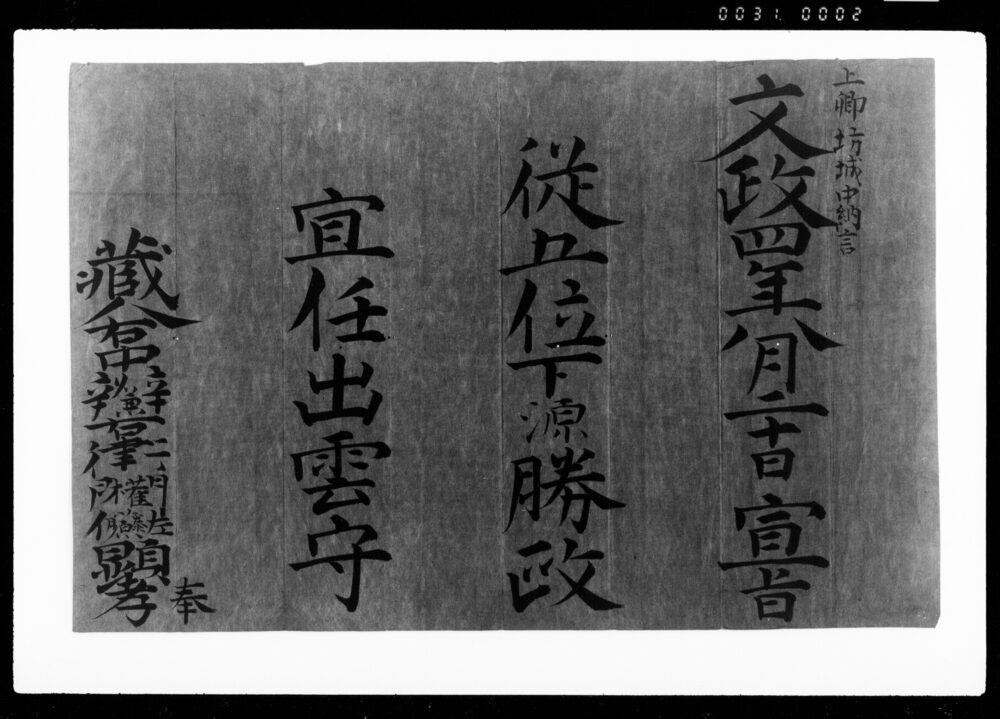 0031 0002
上卿 坊城中納言
文政四年八月二十日 宣旨
従五位下源勝政
宜任出雲守
藏人右中辨兼右衛門權佐藤原顯孝 奉